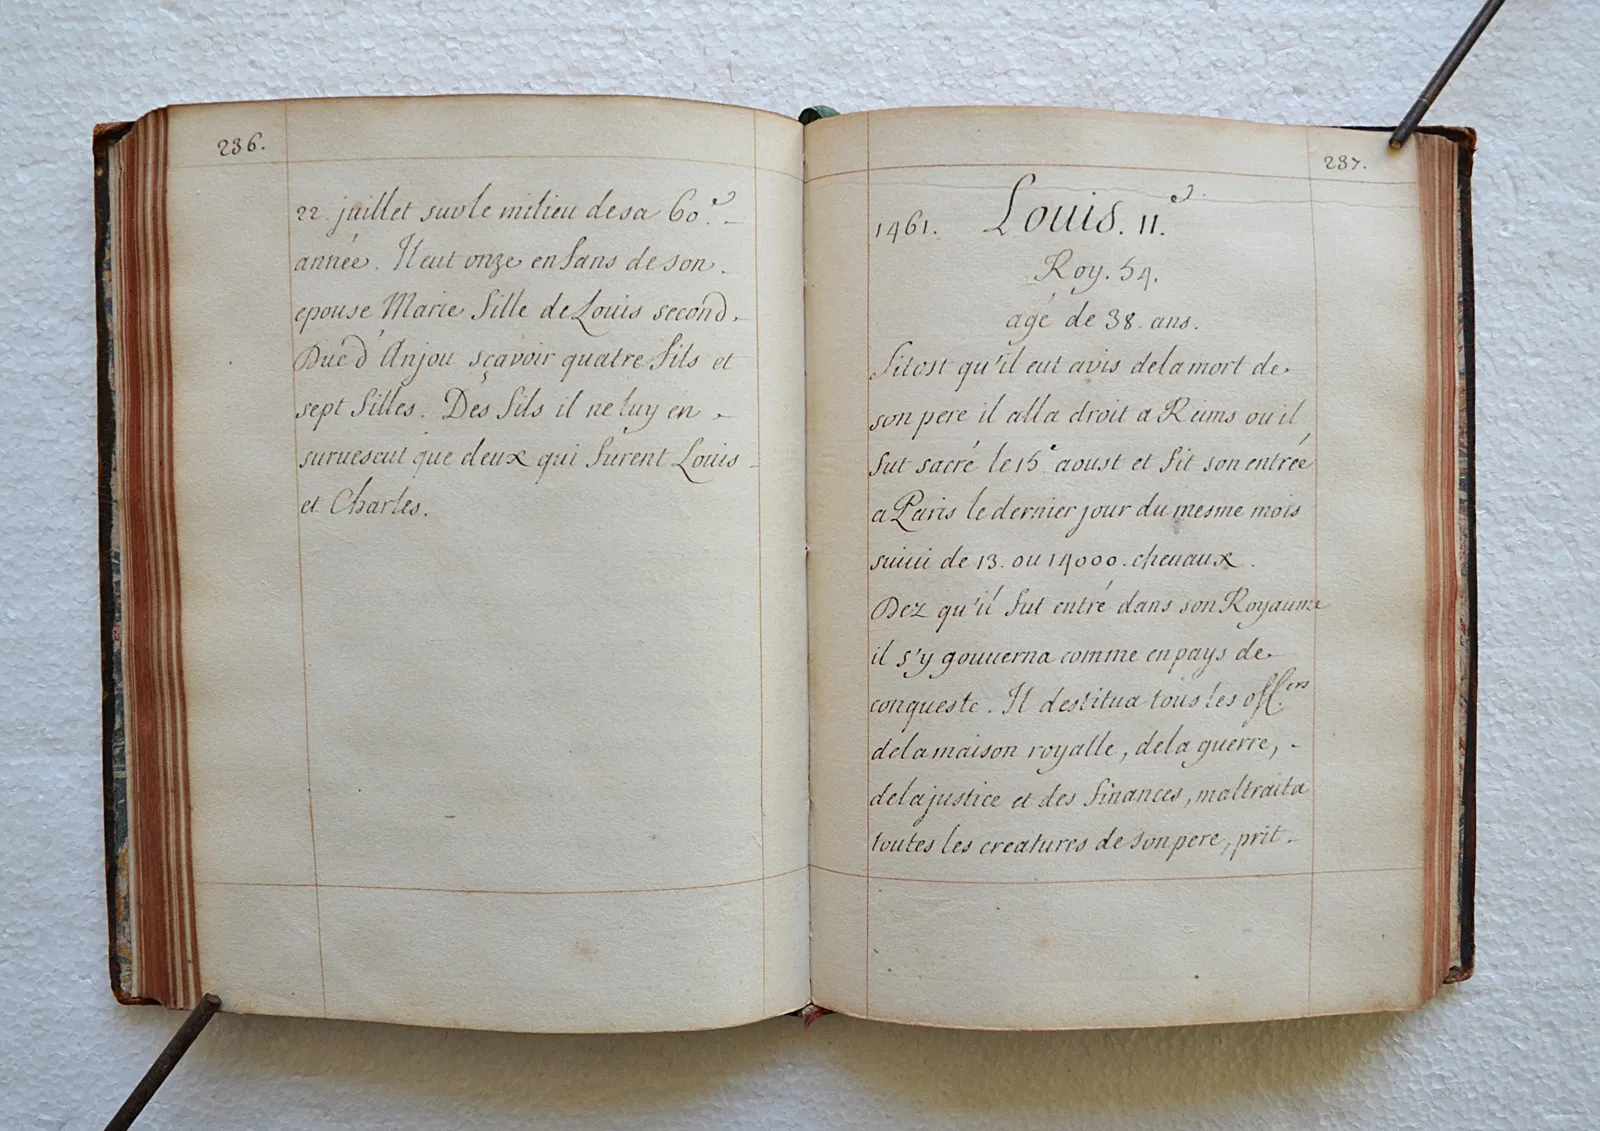 236.
22. juillet sur le milieu de sa 60.e
année. Il eut onze enfans de son
epouse Marie fille de Louis second
Duc d'Anjou sçavoir quatre fils et
sept filles. Des fils il ne luy en
suruescut que deux qui furent Louis
et Charles.
237.
1461. Louis. 11.e
Roy. 54.
agé de 38. ans.
Sitost qu'il eut avis de la mort de
son pere il alla droit a Reims ou il
fut sacré le 15.e aoust et fit son entrée
a Paris le dernier jour du mesme mois
suiui de 13. ou 14000. cheuaux.
Dez qu'il fut entré dans son Royaume
il s'y gouuerna comme en pays de
conqueste. Il destitua tous les off.ers
de la maison royalle, de la guerre,
de la justice et des finances, maltraita
toutes les creatures de son pere, prit